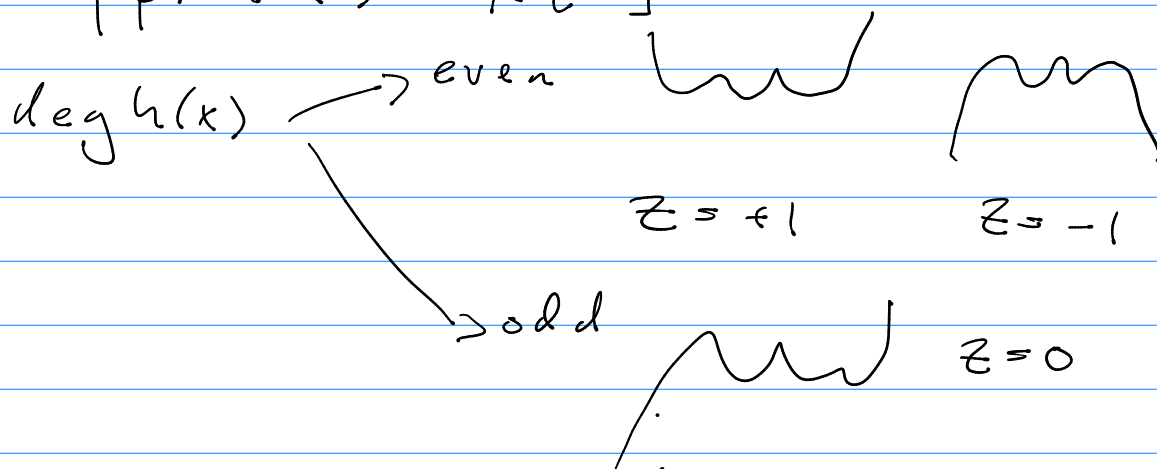 deg h(x) → even
Z = +1 Z = -1
→ odd Z = 0